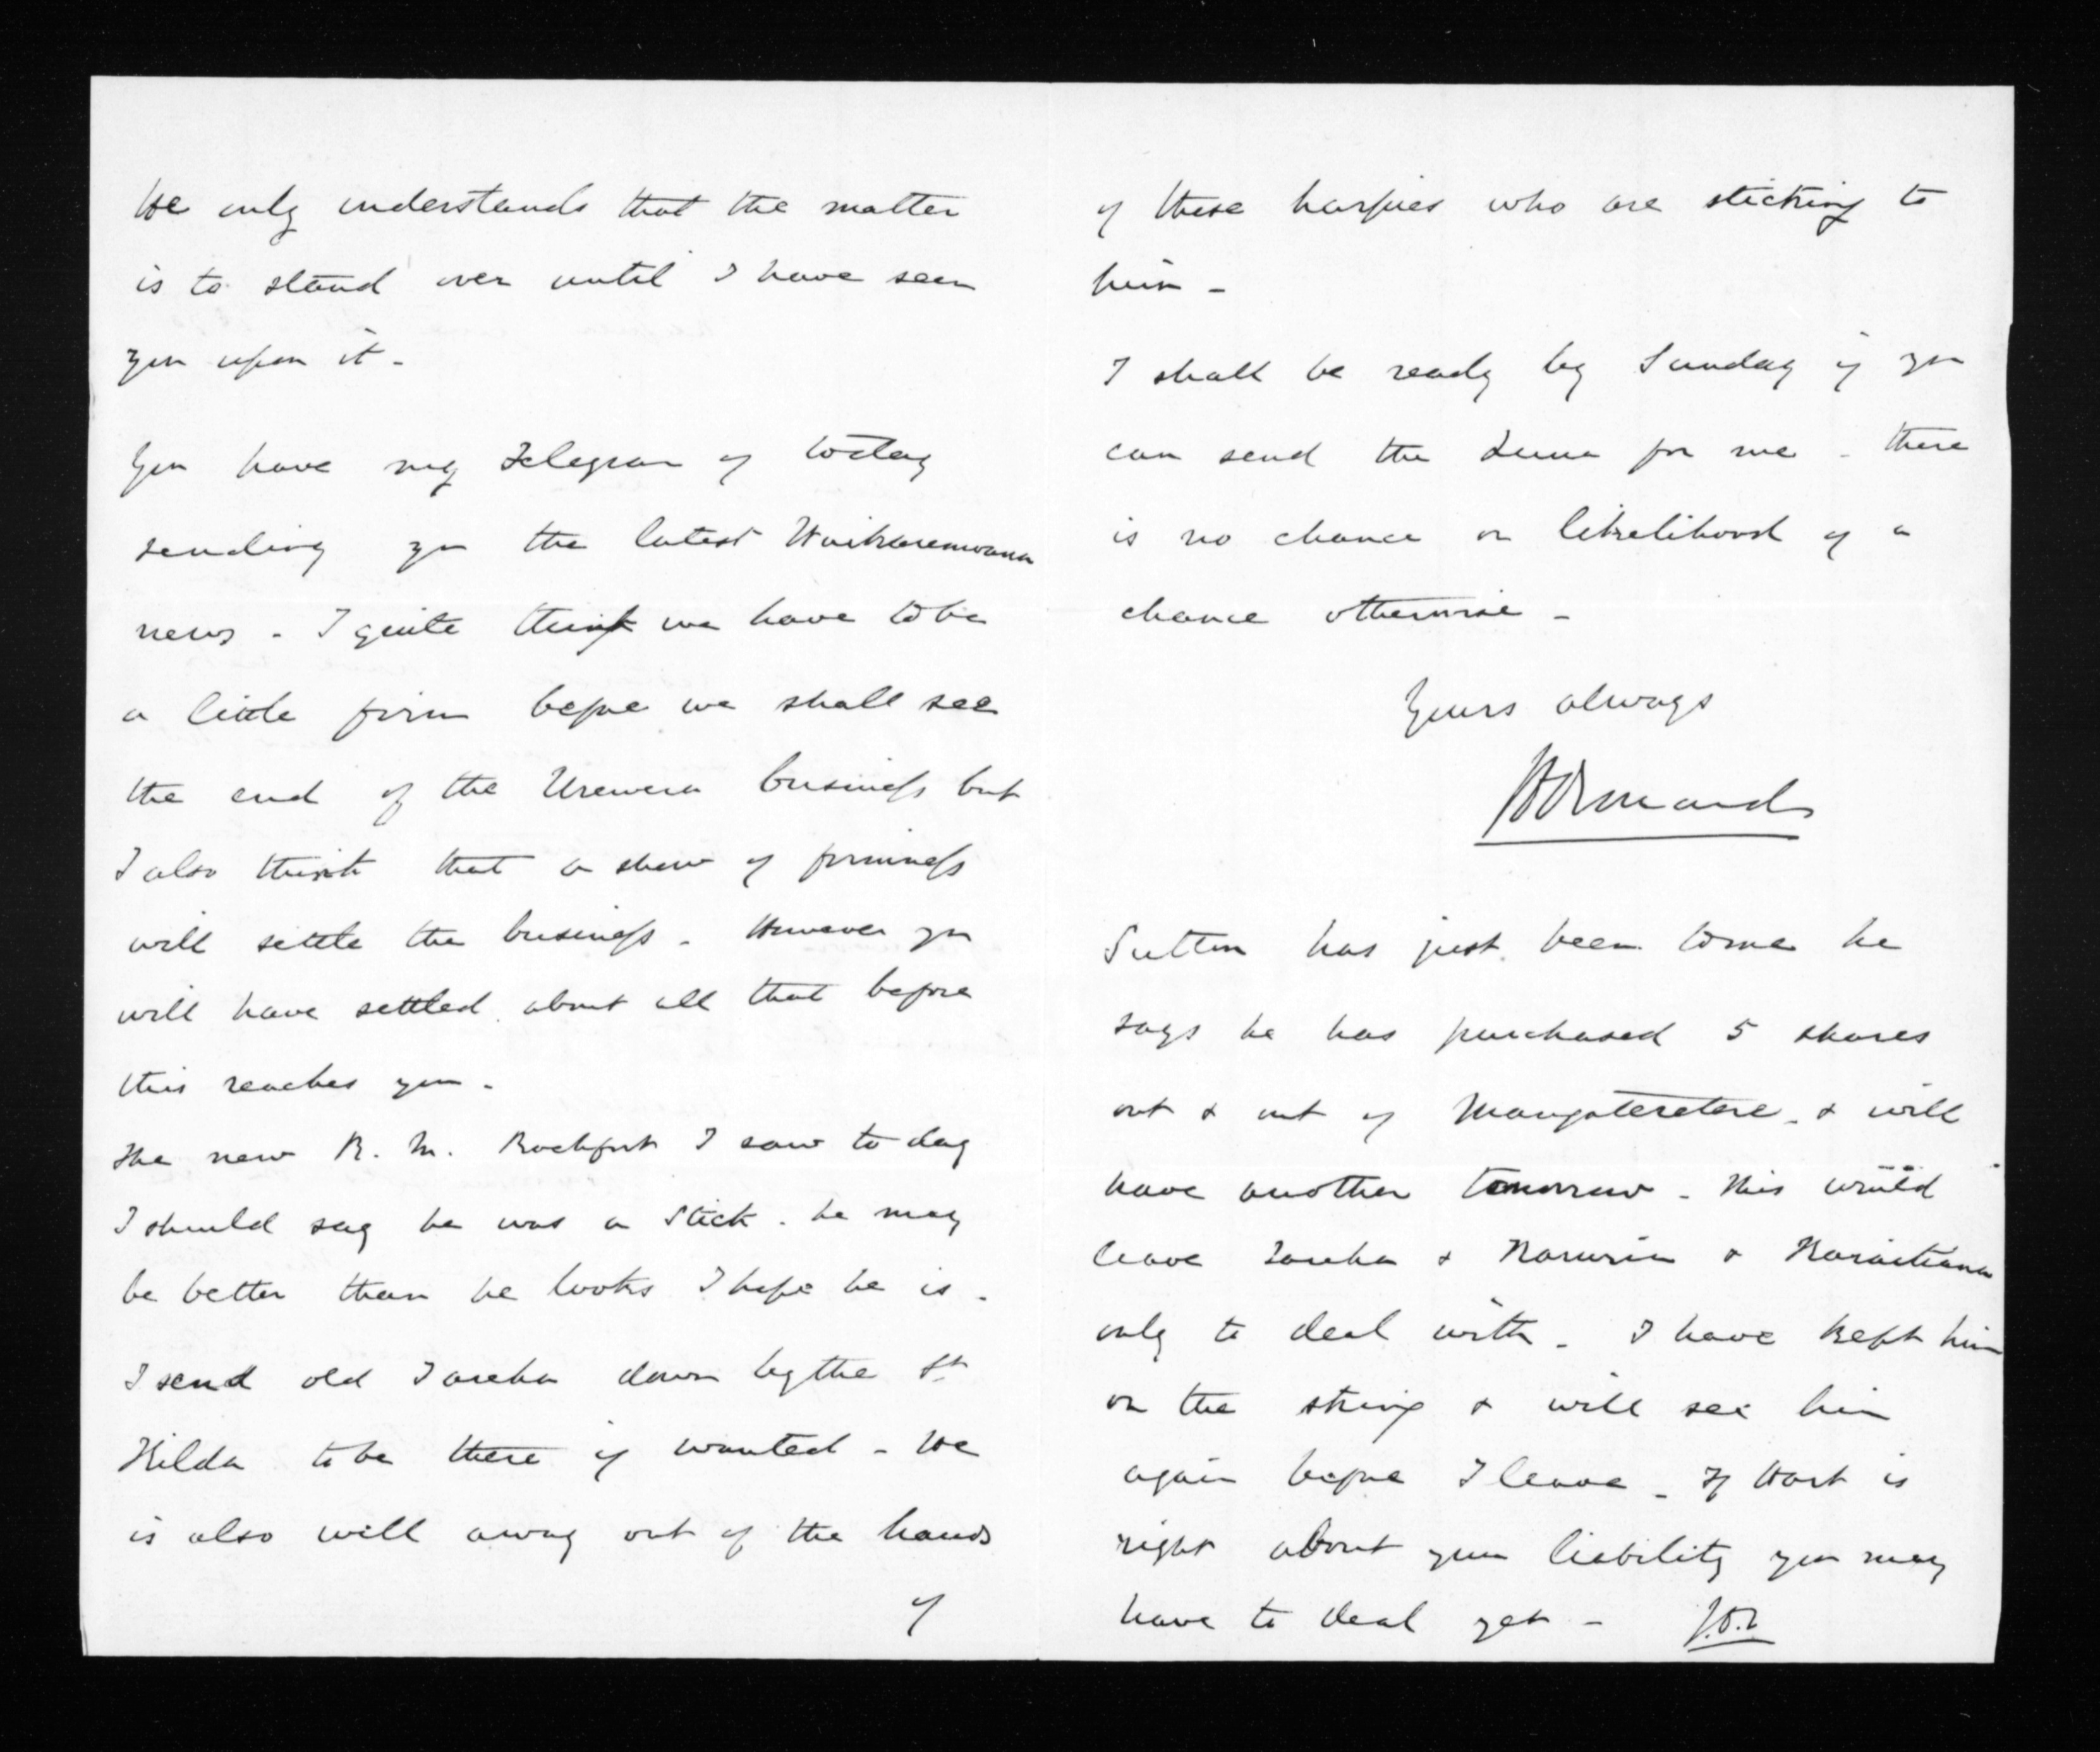 He only understands that the matter
is to stand over until I have seen
you upon it -
You have my Telegram of today
sending you the latest Waikaremoana
news - I quite think we have to be
a little firm before we shall see
the end of the Urewera business but
I also think that a show of firmness
will settle the business. However you
will have settled about all that before
this reaches you -
The new R. M. Rochfort I saw to day
I should say he was a stick. he may
be better than he looks I hope he is.
I send old Tareha down by the St
Kilda to be there if wanted - He
is also well away out of the hands
of
of these harpies who are sticking to
him -
I shall be ready by Sunday if you
can send the Luna for me - there
is no chance or likelihood of a
chance otherwise -
Yours always
JDOrmond
Sutton has just been to me he
says he has purchased 5 shares
out & out of Mangateretere - & will
have another tomorrow - this would
leave Tareha & & Karaitiana
only to deal with - I have kept him
on the string & will see him
again before I leave - If Hart is
right about your liability you may
have to deal yet - J.D.O.